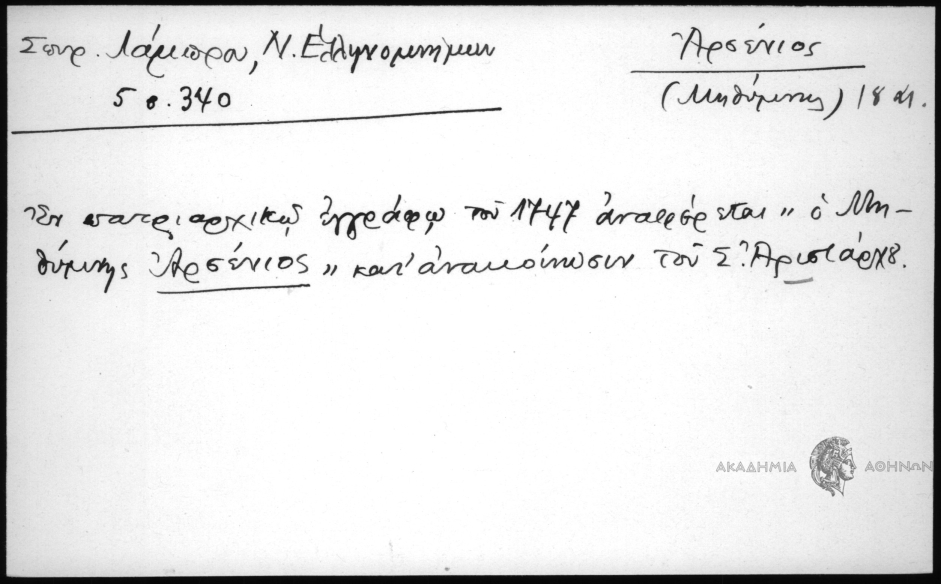 Σπυρ. Λάμπρου, Ν. Ἑλληνομνήμων
5 σ. 340
Ἀρσένιος
(Μηθύμνης) 18 αι.
Ἐν πατριαρχικῷ ἐγγράφῳ τοῦ 1747 ἀναφέρεται „ ὁ Μη-
θύμνης Ἀρσένιος „ κατ' ἀνακοίνωσιν τοῦ Σ. Ἀριστάρχȣ.
ΑΚΑΔΗΜΙΑ ΑΘΗΝΩΝ